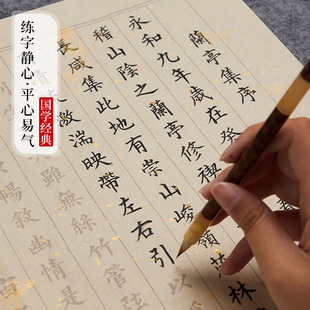 练字静心·平心易气
国学经典
蘭亭集序
永和九年歲在癸
稽山陰之蘭亭修禊
長咸集此地有崇山峻嶺茂林
激湍映帶左右引以
雖無絲竹管弦
暢敘幽情是